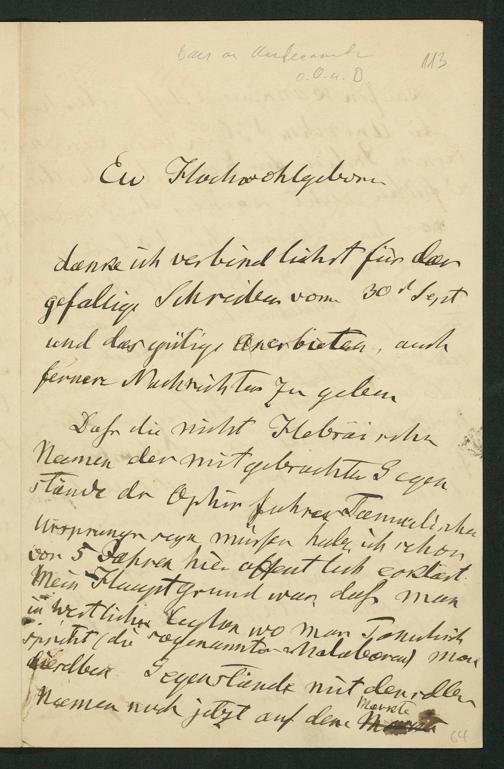 113
o. O. u. D
Ew Hochwohlgeboren
danke ich verbindlichst für das
gefällige Schreiben vom 30st Sept
und das gütige Anerbieten, auch
fernere Nachrichten zu geben
Dass die nicht Hebräischen
Namen der mitgebrachten Gegen
stände der Ophir fahrer Tamulischen
Ursprungs seyn müssen habe ich schon
vor 5 Jahren hier öffentlich erklärt.
Mein Hauptgrund war dass man
in westlichen Ceylon wo man Tamulisch
spricht (die sogenannten Malabaren) man
dieselben Gegenstände mit denselben
Namen noch jetzt auf dem
Markte
64